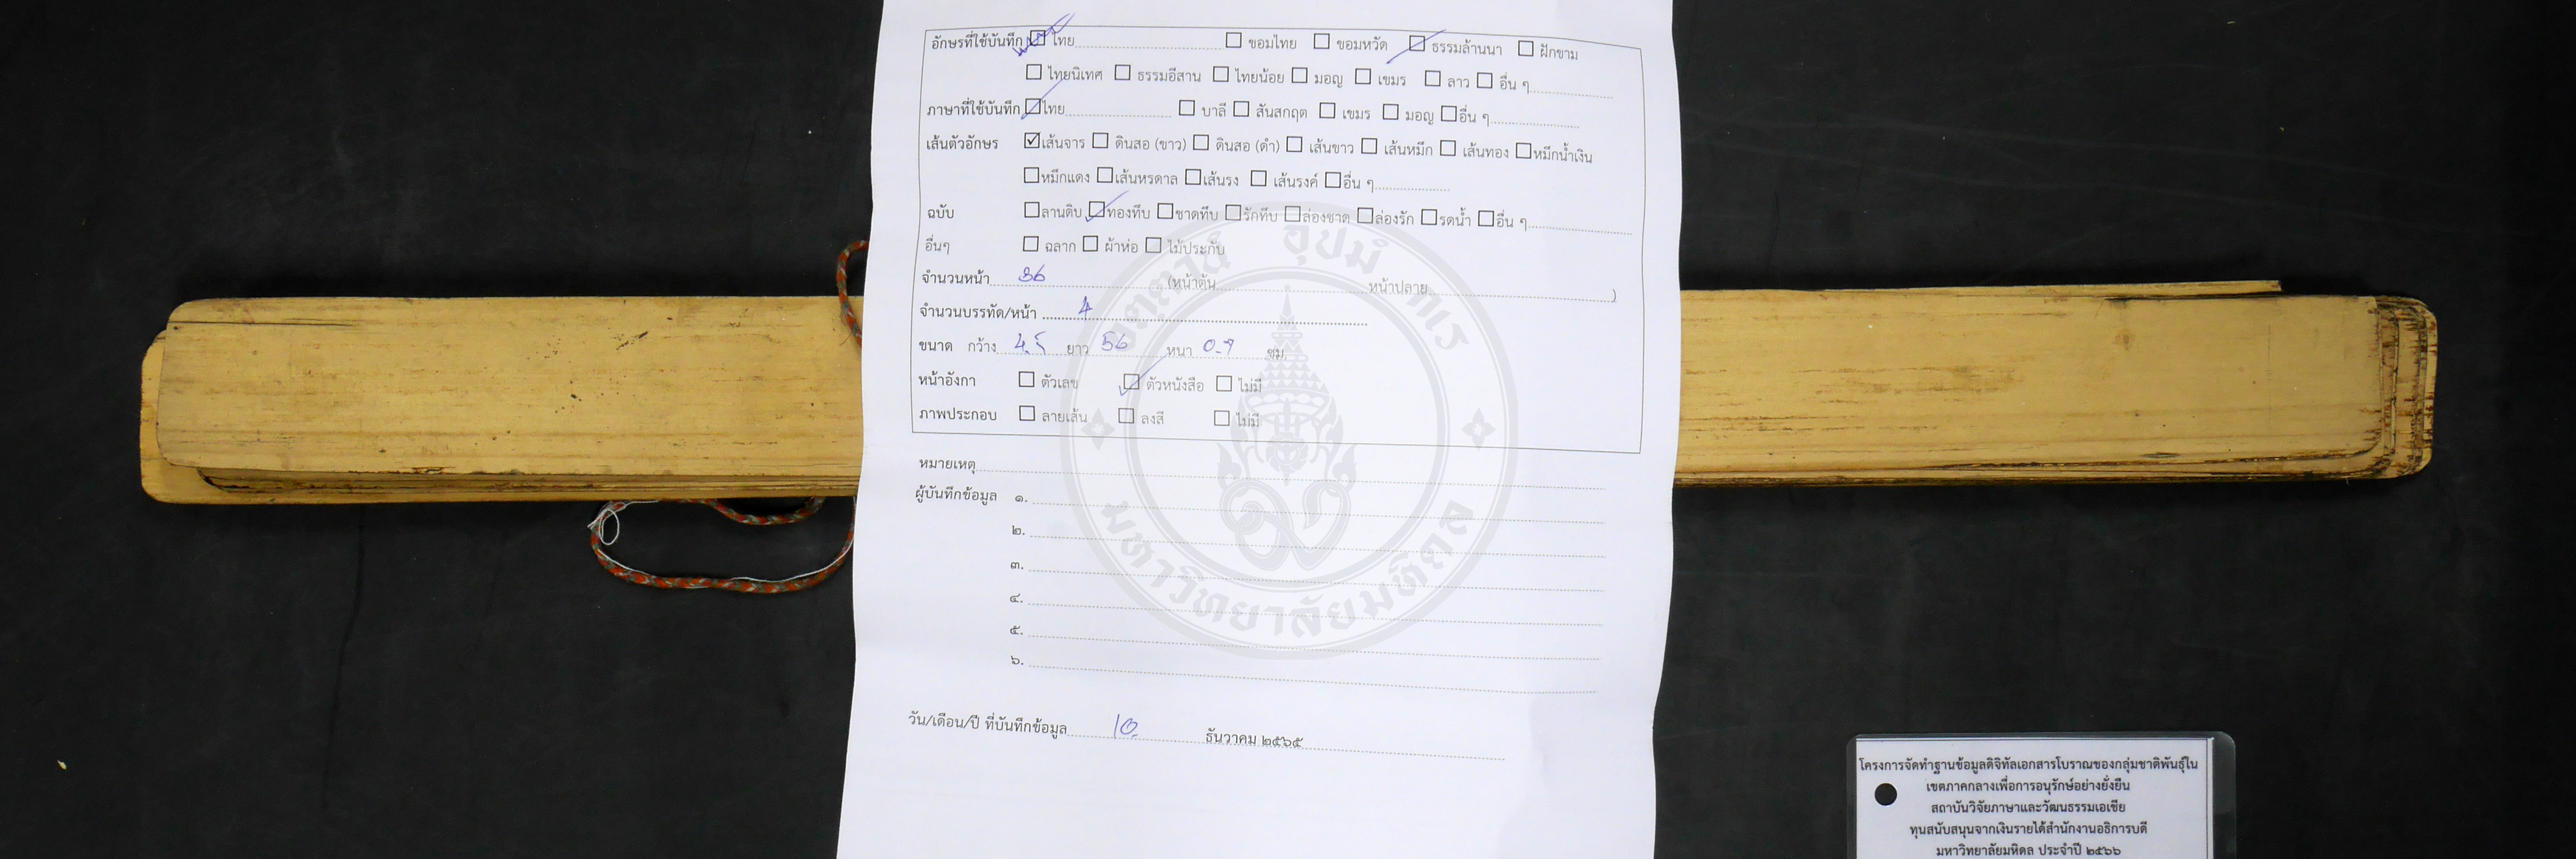 อักษรที่ใช้บันทึก ☑ ไทย ☐ ขอมไทย ☐ ขอมหวัด ☑ ธรรมล้านนา ☐ ฝักขาม
☐ ไทยนิเทศ ☐ ธรรมอีสาน ☐ ไทยน้อย ☐ มอญ ☐ เขมร ☐ ลาว ☐ อื่น ๆ
ภาษาที่ใช้บันทึก ☑ ไทย ☐ บาลี ☐ สันสกฤต ☐ เขมร ☐ มอญ ☐ อื่น ๆ
เส้นตัวอักษร ☑ เส้นจาร ☐ ดินสอ (ขาว) ☐ ดินสอ (ดำ) ☐ เส้นขาว ☐ เส้นหมึก ☐ เส้นทอง ☐ หมึกน้ำเงิน
☐ หมึกแดง ☐ เส้นหรดาล ☐ เส้นรง ☐ เส้นรงค์ ☐ อื่น ๆ
ฉบับ ☐ ลานดิบ ☑ ทองทึบ ☐ ชาดทึบ ☐ รักทึบ ☐ ล่องชาด ☐ ล่องรัก ☐ รดน้ำ ☐ อื่น ๆ
อื่นๆ ☐ ฉลาก ☐ ผ้าห่อ ☐ ไม้ประกับ
จำนวนหน้า 36 (หน้าต้น หน้าปลาย )
จำนวนบรรทัด/หน้า 4
ขนาด กว้าง 4.5 ยาว 56 หนา ซม.
หน้าอังกา ☐ ตัวเลข ☑ ตัวหนังสือ ☐ ไม่มี
ภาพประกอบ ☐ ลายเส้น ☐ ลงสี ☐ ไม่มี
หมายเหตุ
ผู้บันทึกข้อมูล ๑.
๒.
๓.
๔.
๕.
๖.
วัน/เดือน/ปี ที่บันทึกข้อมูล 10 ธันวาคม ๒๕๖๕
อตฺตานํ อุปมํ กเร
มหาวิทยาลัยมหิดล
โครงการจัดทำฐานข้อมูลดิจิทัลเอกสารโบราณของกลุ่มชาติพันธุ์ใน
เขตภาคกลางเพื่อการอนุรักษ์อย่างยั่งยืน
สถาบันวิจัยภาษาและวัฒนธรรมเอเชีย
ทุนสนับสนุนจากเงินรายได้สำนักงานอธิการบดี
มหาวิทยาลัยมหิดล ประจำปี ๒๕๖๖